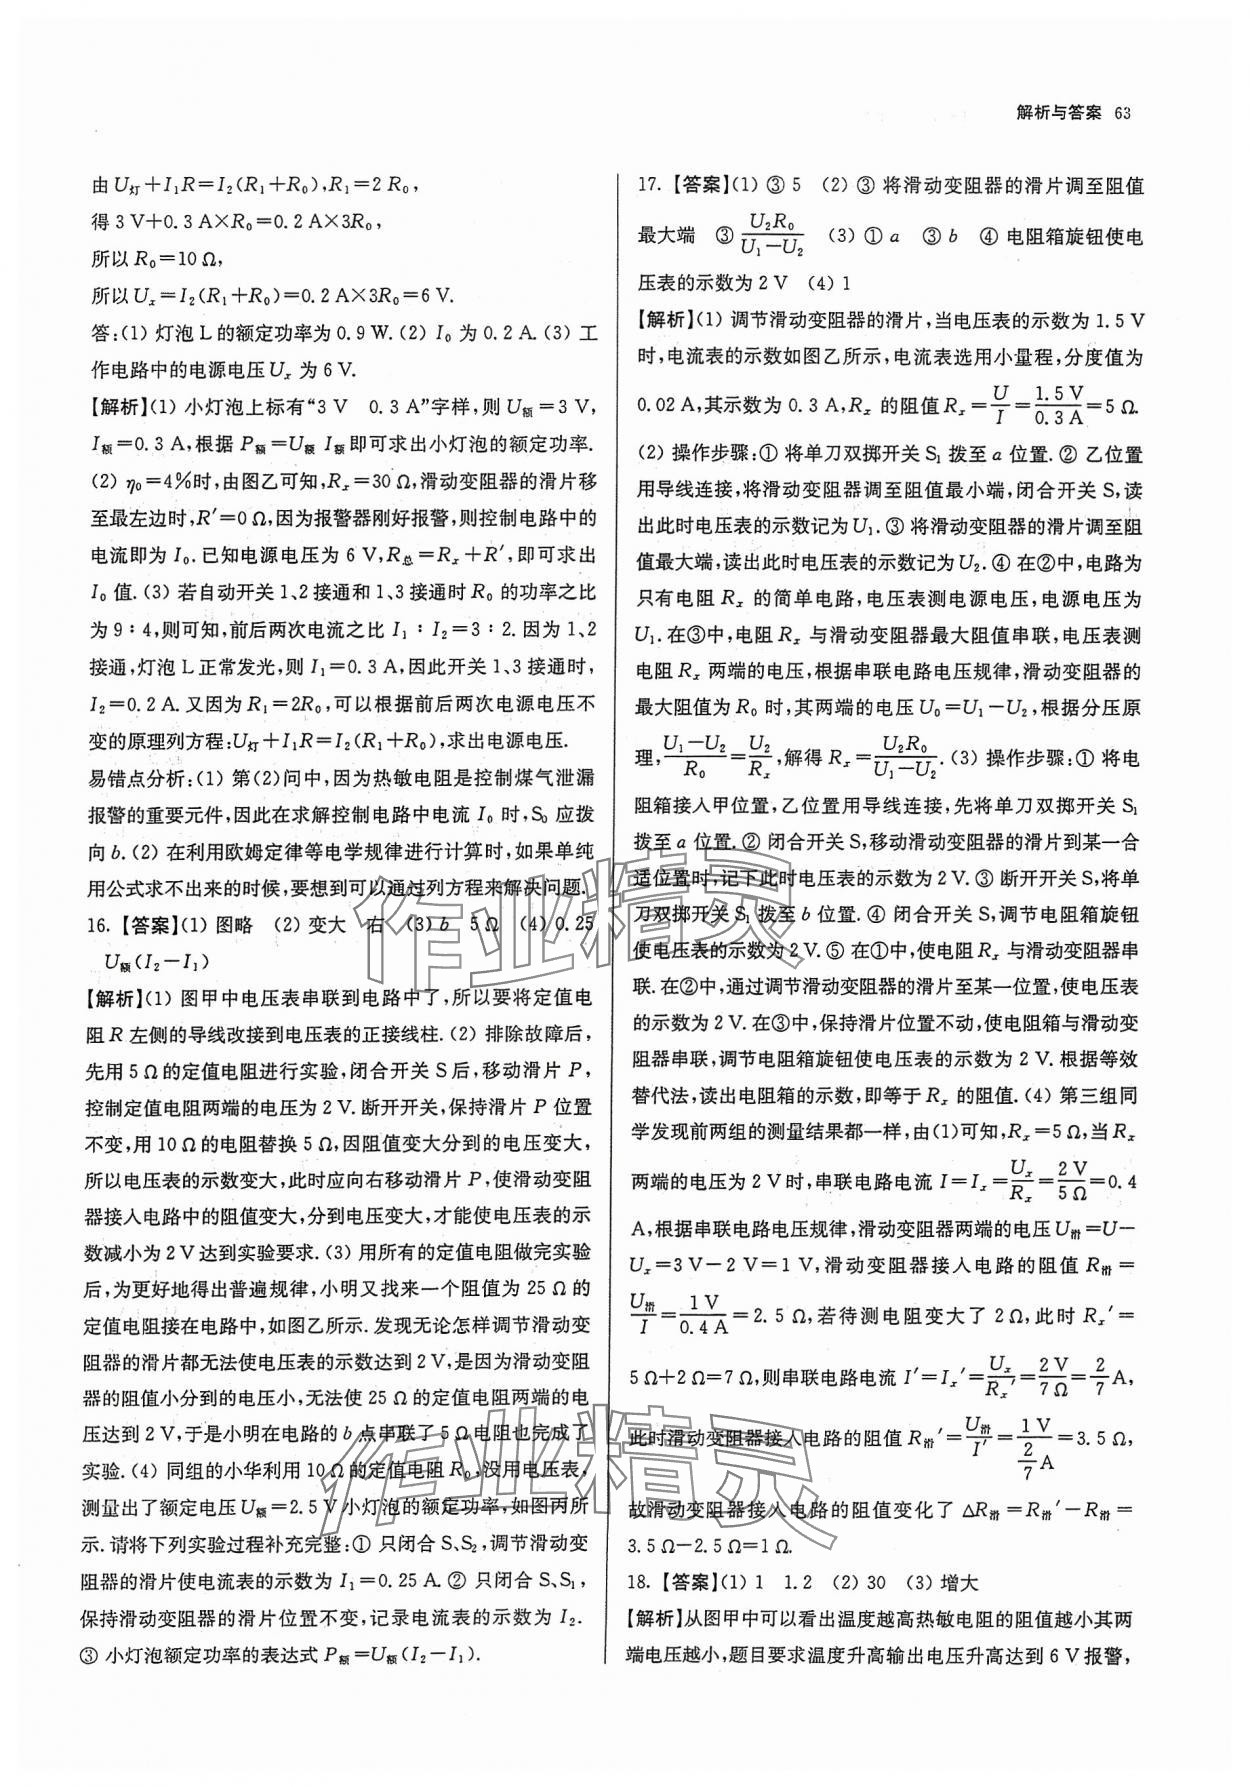 解析与答案 63
由 U灯＋I₁R＝I₂(R₁＋R₀),R₁＝2 R₀,
得 3 V＋0.3 A×R₀＝0.2 A×3R₀,
所以 R₀＝10 Ω,
所以 Uₓ＝I₂(R₁＋R₀)＝0.2 A×3R₀＝6 V.
答:(1) 灯泡 L 的额定功率为 0.9 W.(2) I₀ 为 0.2 A.(3) 工
作电路中的电源电压 Uₓ 为 6 V.
【解析】(1) 小灯泡上标有“3 V 0.3 A”字样,则 U额＝3 V,
I额＝0.3 A,根据 P额＝U额 I额即可求出小灯泡的额定功率.
(2) η₀＝4%时,由图乙可知,Rₓ＝30 Ω,滑动变阻器的滑片移
至最左边时,R′＝0 Ω,因为报警器刚好报警,则控制电路中的
电流即为 I₀.已知电源电压为 6 V,R总＝Rₓ＋R′,即可求出
I₀ 值.(3) 若自动开关 1、2 接通和 1、3 接通时 R₀ 的功率之比
为 9∶4,则可知,前后两次电流之比 I₁∶I₂＝3∶2.因为 1、2
接通,灯泡 L 正常发光,则 I₁＝0.3 A,因此开关 1、3 接通时,
I₂＝0.2 A.又因为 R₁＝2R₀,可以根据前后两次电源电压不
变的原理列方程:U灯＋I₁R＝I₂(R₁＋R₀),求出电源电压.
易错点分析:(1) 第(2)问中,因为热敏电阻是控制煤气泄漏
报警的重要元件,因此在求解控制电路中电流 I₀ 时,S₀ 应拨
向 b.(2) 在利用欧姆定律等电学规律进行计算时,如果单纯
用公式求不出来的时候,要想到可以通过列方程来解决问题.
16. 【答案】(1) 图略 (2) 变大 右 (3) b 5 Ω (4) 0.25
U额(I₂－I₁)
【解析】(1) 图甲中电压表串联到电路中了,所以要将定值电
阻 R 左侧的导线改接到电压表的正接线柱.(2) 排除故障后,
先用 5 Ω 的定值电阻进行实验,闭合开关 S 后,移动滑片 P,
控制定值电阻两端的电压为 2 V.断开开关,保持滑片 P 位置
不变,用 10 Ω 的电阻替换 5 Ω,因阻值变大分到的电压变大,
所以电压表的示数变大,此时应向右移动滑片 P,使滑动变阻
器接入电路中的阻值变大,分到电压变大,才能使电压表的示
数减小为 2 V 达到实验要求.(3) 用所有的定值电阻做完实验
后,为更好地得出普遍规律,小明又找来一个阻值为 25 Ω 的
定值电阻接在电路中,如图乙所示.发现无论怎样调节滑动变
阻器的滑片都无法使电压表的示数达到 2 V,是因为滑动变阻
器的阻值小分到的电压小,无法使 25 Ω 的定值电阻两端的电
压达到 2 V,于是小明在电路的 b 点串联了 5 Ω 电阻也完成了
实验.(4) 同组的小华利用 10 Ω 的定值电阻 R₀,没用电压表,
测量出了额定电压 U额＝2.5 V 小灯泡的额定功率,如图丙所
示.请将下列实验过程补充完整:① 只闭合 S、S₂,调节滑动变
阻器的滑片使电流表的示数为 I₁＝0.25 A.② 只闭合 S、S₁,
保持滑动变阻器的滑片位置不变,记录电流表的示数为 I₂.
③ 小灯泡额定功率的表达式 P额＝U额(I₂－I₁).
17. 【答案】(1) ③ 5 (2) ③ 将滑动变阻器的滑片调至阻值
最大端 ③ U₂R₀/(U₁－U₂) (3) ① a ③ b ④ 电阻箱旋钮使电
压表的示数为 2 V (4) 1
【解析】(1) 调节滑动变阻器的滑片,当电压表的示数为 1.5 V
时,电流表的示数如图乙所示,电流表选用小量程,分度值为
0.02 A,其示数为 0.3 A,Rₓ 的阻值 Rₓ＝U/I＝1.5 V/0.3 A＝5 Ω.
(2) 操作步骤:① 将单刀双掷开关 S₁ 拨至 a 位置.② 乙位置
用导线连接,将滑动变阻器调至阻值最小端,闭合开关 S,读
出此时电压表的示数记为 U₁.③ 将滑动变阻器的滑片调至阻
值最大端,读出此时电压表的示数记为 U₂.④ 在②中,电路为
只有电阻 Rₓ 的简单电路,电压表测电源电压,电源电压为
U₁.在③中,电阻 Rₓ 与滑动变阻器最大阻值串联,电压表测
电阻 Rₓ 两端的电压,根据串联电路电压规律,滑动变阻器的
最大阻值为 R₀ 时,其两端的电压 U₀＝U₁－U₂,根据分压原
理,(U₁－U₂)/R₀＝U₂/Rₓ,解得 Rₓ＝U₂R₀/(U₁－U₂).(3) 操作步骤:① 将电
阻箱接入甲位置,乙位置用导线连接,先将单刀双掷开关 S₁
拨至 a 位置.② 闭合开关 S,移动滑动变阻器的滑片到某一合
适位置时,记下此时电压表的示数为 2 V.③ 断开开关 S,将单
刀双掷开关 S₁ 拨至 b 位置.④ 闭合开关 S,调节电阻箱旋钮
使电压表的示数为 2 V.⑤ 在①中,使电阻 Rₓ 与滑动变阻器串
联.在②中,通过调节滑动变阻器的滑片至某一位置,使电压表
的示数为 2 V.在③中,保持滑片位置不动,使电阻箱与滑动变
阻器串联,调节电阻箱旋钮使电压表的示数为 2 V.根据等效
替代法,读出电阻箱的示数,即等于 Rₓ 的阻值.(4) 第三组同
学发现前两组的测量结果都一样,由(1)可知,Rₓ＝5 Ω,当 Rₓ
两端的电压为 2 V 时,串联电路电流 I＝Iₓ＝Uₓ/Rₓ＝2 V/5 Ω＝0.4
A,根据串联电路电压规律,滑动变阻器两端的电压 U滑＝U－
Uₓ＝3 V－2 V＝1 V,滑动变阻器接入电路的阻值 R滑＝
U滑/I＝1 V/0.4 A＝2.5 Ω,若待测电阻变大了 2 Ω,此时 Rₓ′＝
5 Ω＋2 Ω＝7 Ω,则串联电路电流 I′＝Iₓ′＝Uₓ/Rₓ′＝2 V/7 Ω＝2/7 A,
此时滑动变阻器接入电路的阻值 R滑′＝U滑/I′＝1 V/(2/7 A)＝3.5 Ω,
故滑动变阻器接入电路的阻值变化了 ΔR滑＝R滑′－R滑＝
3.5 Ω－2.5 Ω＝1 Ω.
18. 【答案】(1) 1 1.2 (2) 30 (3) 增大
【解析】从图甲中可以看出温度越高热敏电阻的阻值越小其两
端电压越小,题目要求温度升高输出电压升高达到 6 V 报警,
作业精灵
作业精灵